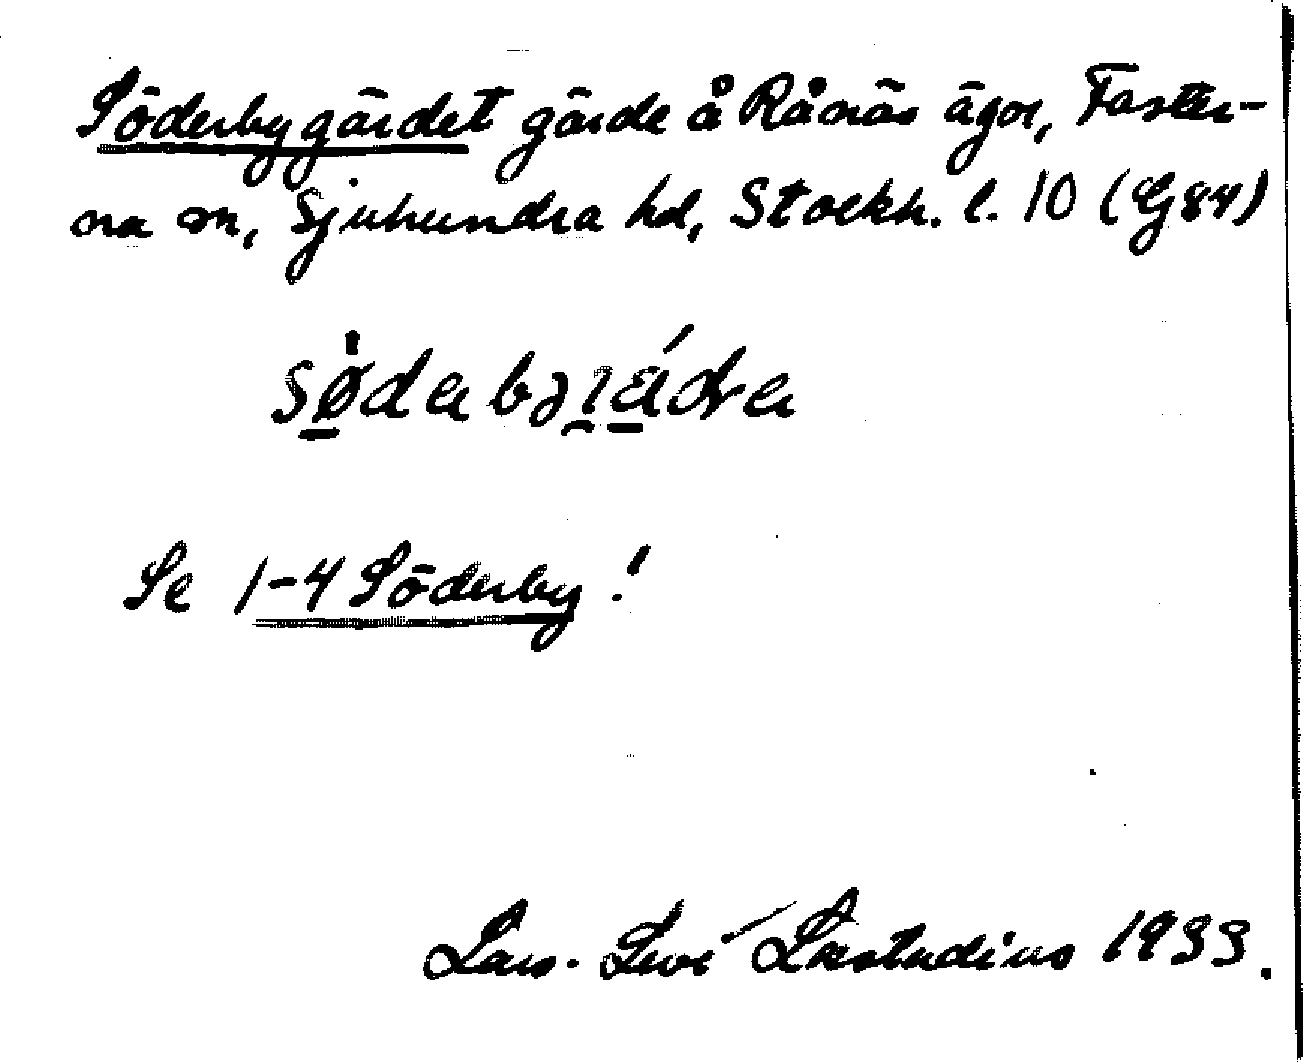 Söderbygärdet gärde å Rånäs ägor, Faster-
na sn, Sjuhundra hd, Stockh. l. 10 (Gj 84)
Se 1-4 Söderby!
Lars-Levi Læstadius 1933.